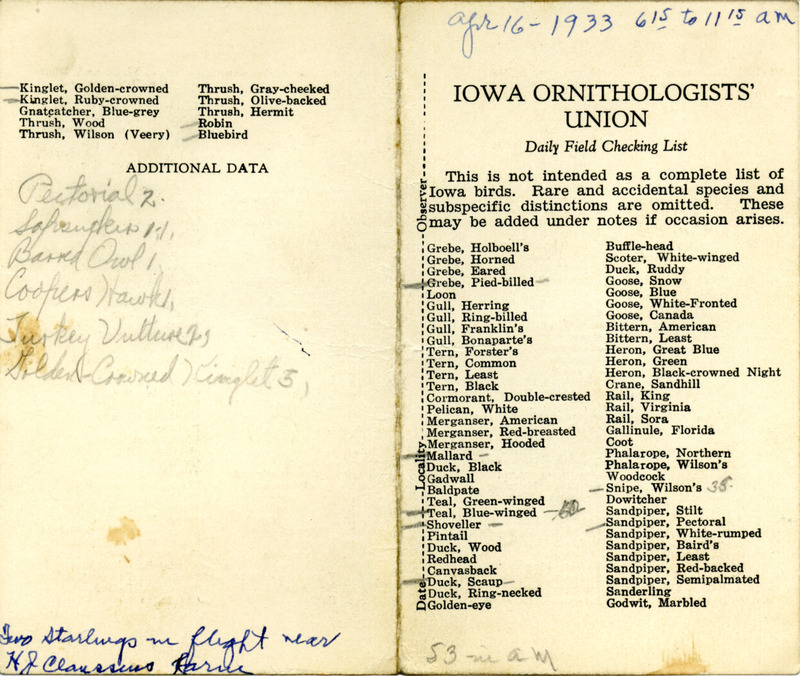 Kinglet, Golden-crowned
Kinglet, Ruby-crowned
Gnatcatcher, Blue-grey
Thrush, Wood
Thrush, Wilson (Veery)
Thrush, Gray-cheeked
Thrush, Olive-backed
Thrush, Hermit
Robin
Bluebird
ADDITIONAL DATA
Pectorial 2.
Barred Owl 1,
Coopers Hawk 1,
Turkey Vulture 2,
Golden-Crowned Kinglet 5,
Two Starlings in flight near
H J Claussens Farm
Apr 16-1933 6 15 to 11 15 am
IOWA ORNITHOLOGISTS'
UNION
Daily Field Checking List
This is not intended as a complete list of
Iowa birds. Rare and accidental species and
subspecific distinctions are omitted. These
may be added under notes if occasion arises.
Date Locality Observer
Grebe, Holboell's
Grebe, Horned
Grebe, Eared
Grebe, Pied-billed
Loon
Gull, Herring
Gull, Ring-billed
Gull, Franklin's
Gull, Bonaparte's
Tern, Forster's
Tern, Common
Tern, Least
Tern, Black
Cormorant, Double-crested
Pelican, White
Merganser, American
Merganser, Red-breasted
Merganser, Hooded
Mallard
Duck, Black
Gadwall
Baldpate
Teal, Green-winged
Teal, Blue-winged - 60
Shoveller
Pintail
Duck, Wood
Redhead
Canvasback
Duck, Scaup
Duck, Ring-necked
Golden-eye
Buffle-head
Scoter, White-winged
Duck, Ruddy
Goose, Snow
Goose, Blue
Goose, White-Fronted
Goose, Canada
Bittern, American
Bittern, Least
Heron, Great Blue
Heron, Green
Heron, Black-crowned Night
Crane, Sandhill
Rail, King
Rail, Virginia
Rail, Sora
Gallinule, Florida
Coot
Phalarope, Northern
Phalarope, Wilson's
Woodcock
Snipe, Wilson's 35
Dowitcher
Sandpiper, Stilt
Sandpiper, Pectoral
Sandpiper, White-rumped
Sandpiper, Baird's
Sandpiper, Least
Sandpiper, Red-backed
Sandpiper, Semipalmated
Sanderling
Godwit, Marbled
53 - in a M